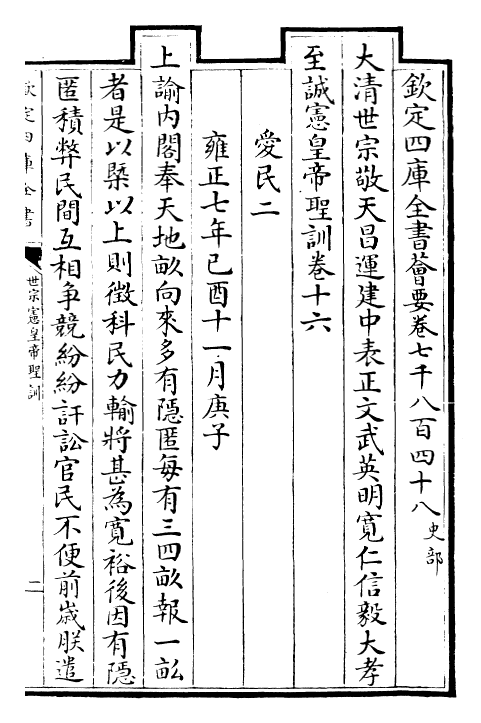 欽定四庫全書薈要卷七千八百四十八 史部
大清世宗敬天昌運建中表正文武英明寬仁信毅大孝
至誠憲皇帝聖訓卷十六
愛民二
雍正七年己酉十一月庚子
上諭內閣奉天地畝向來多有隱匿每有三四畝報一畝
者是以槩以上則徵科民力輸將甚為寬裕後因有隱
匿積弊民間互相爭競紛紛訐訟官民不便前歲朕遣
欽定四庫全書
世宗憲皇帝聖訓
二